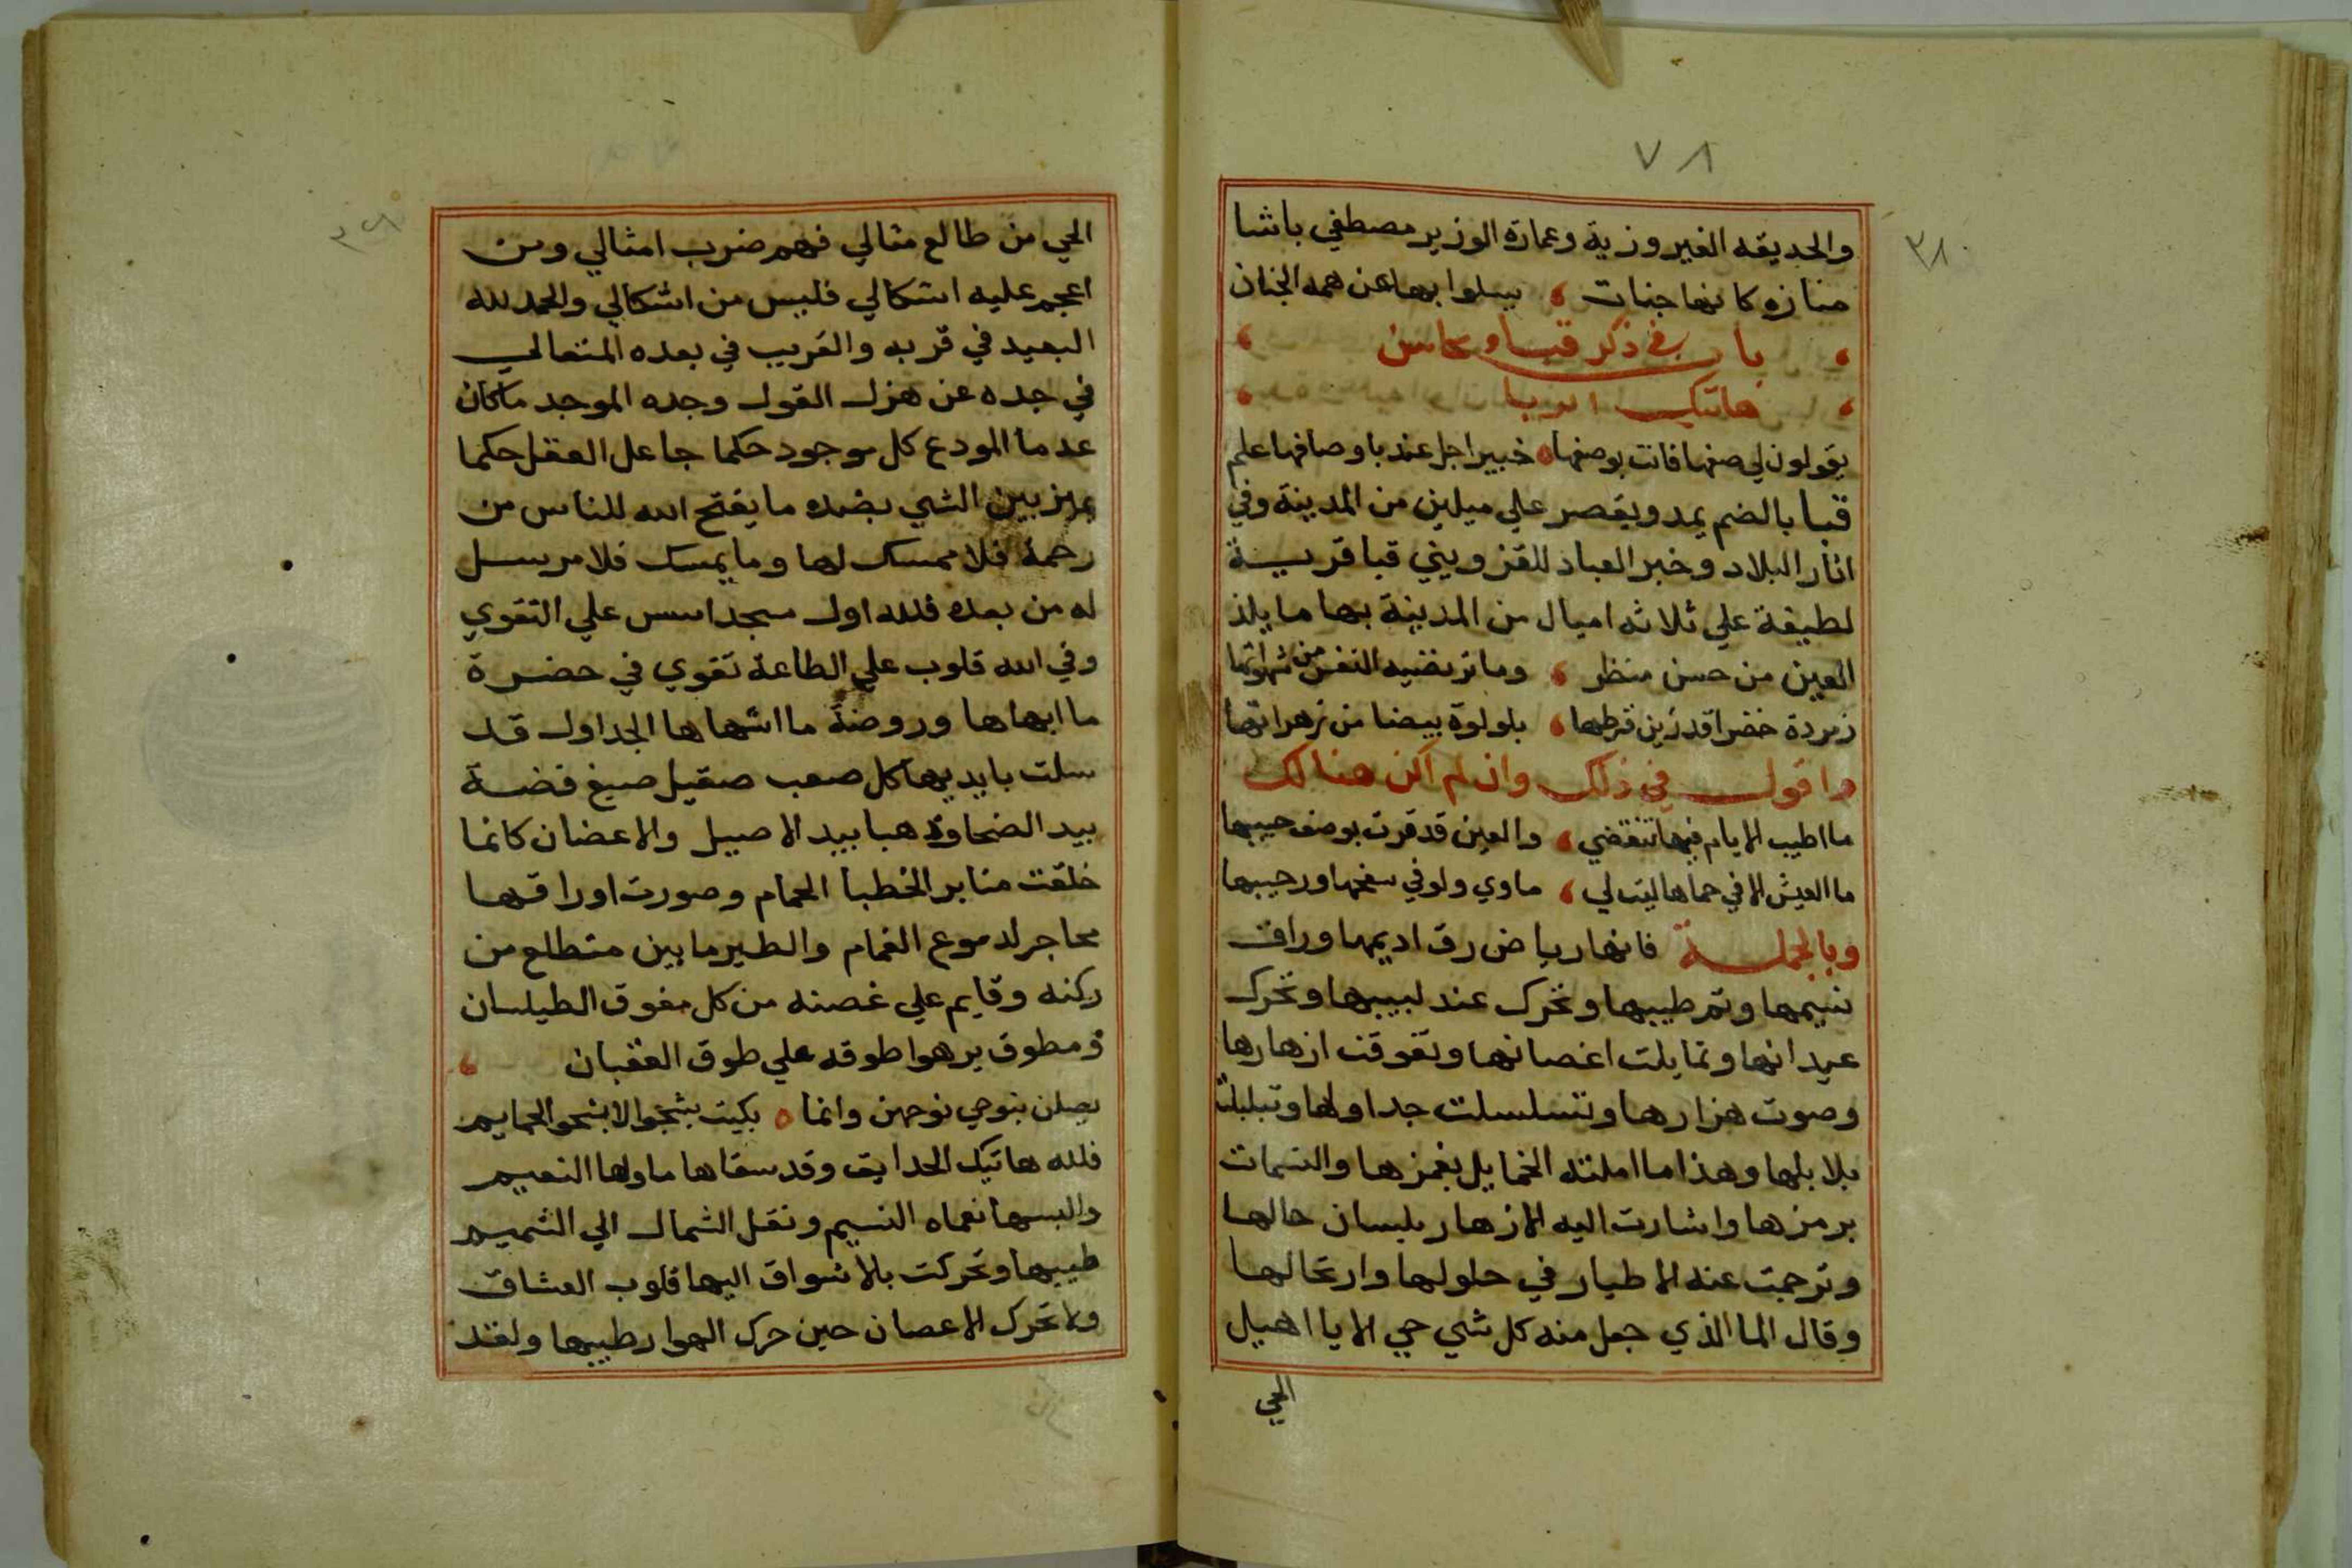 ٧٨
٣٨
والحديقه الفيروزية وعمارة الوزير مصطفي باشا
منازه كانها جنات يسلوا بها عن همه الجنان
باب في ذكر قبا ومحاسن
هاتيك الربا
يقولون لي صفها فانت بوصفها خبير اجل عندبا وصافها علم
قبا بالضم يمد ويقصر علي ميلين من المدينة وفي
اثار البلاد وخبر العباد للقزويني قبا قرية
لطيفة علي ثلاثه اميال من المدينة بها ما يلذ
العين من حسن منظر وما ترتضيه النفس من شهواتها
زمردة خضرا قد زين قرطها بلولوة بيضا من زهراتها
واقول في ذلك وان لم اكن هنالك
ما اطيب الايام فيها تنقضي والعين قد قرت بوصف حبيبها
ما العيش الا في حماها ليت لي ماوي ولو في سفحها ورحيبها
وبالجملة فانها رياض رق اديمها وراق
نسيمها وتم طيبها وتحرك عند لبيبها وتحرك
عيدانها وتمايلت اغصانها وتفوقت ازهارها
وصوت هزارها وتسلسلت جداولها وتبلبلت
بلابلها وهذا ما املته الخمايل بغمزها والنسمات
برمزها واشارت اليه الازهار بلسان حالها
وترجمت عنه الاطيار في حلولها وارتحالها
وقال الما الذي جعل منه كل شي حي الا يا اهيل
الحي
الحي من طالع مقالي فهم ضرب امثالي ومن
اعجم عليه اشكالي فليس من اشكالي والحمد لله
البعيد في قربه والقريب في بعده المتعالي
في جده عن هزل القول وجده الموجد ما كان
عدما المودع كل موجود حكما جاعل العقل حكما
يميز بين الشي بضده ما يفتح الله للناس من
رحمة فلا ممسك لها وما يمسك فلا مرسل
له من بعده فلله اول مسجد اسس علي التقوي
وفي الله قلوب علي الطاعة تقوي في حضرة
ما ابهاها وروضة ما اشهاها الجداول قد
سلت بايديها كل صعب صقيل صيغ فضة
بيد الضحا وذهبا بيد الاصيل والاغصان كانما
خلقت منابر الخطبا الحمام وصورت اوراقها
محاجر لدموع الغمام والطير ما بين متطلع من
ركنه وقايم علي غصنه من كل مفوق الطيلسان
ومطوق يزهوا طوقه علي طوق العقبان
يصلن بنوحي نوحهن وانما بكيت بشجوا لا بشحو الحمايم
فلله هاتيك الحدايق وقد سقاها ماوها النعيم
والبسها نعماه النسيم ونقل الشمال الي الشميم
طيبها وتحركت بالاشواق اليها قلوب العشاق
ولا تحرك الاعصان حين حرك الهوا رطيبها ولقد